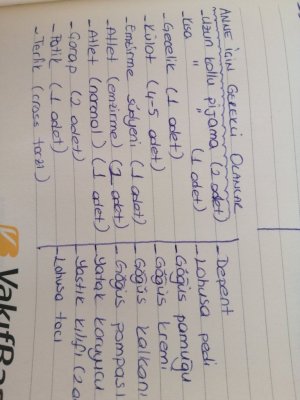 ANNE İÇİN GEREKLİ OLANLAR
- Uzun kollu pijama (2 adet)
- Kısa " " (1 adet)
- Gecelik (1 adet)
- Külot (4-5 adet)
- Emzirme sütyeni (1 adet)
- Atlet (emzirme) (2 adet)
- Atlet (normal) (1 adet)
- Çorap (2 adet)
- Patik (1 adet)
- Terlik (cross tarzı)
- Depent
- Lohusa pedi
- Göğüs pamuğu
- Göğüs kremi
- Göğüs kalkanı
- Göğüs pompası
- Yatak koruyucu
- Yastık kılıfı (2 a
- Lohusa tacı
VakıfBa